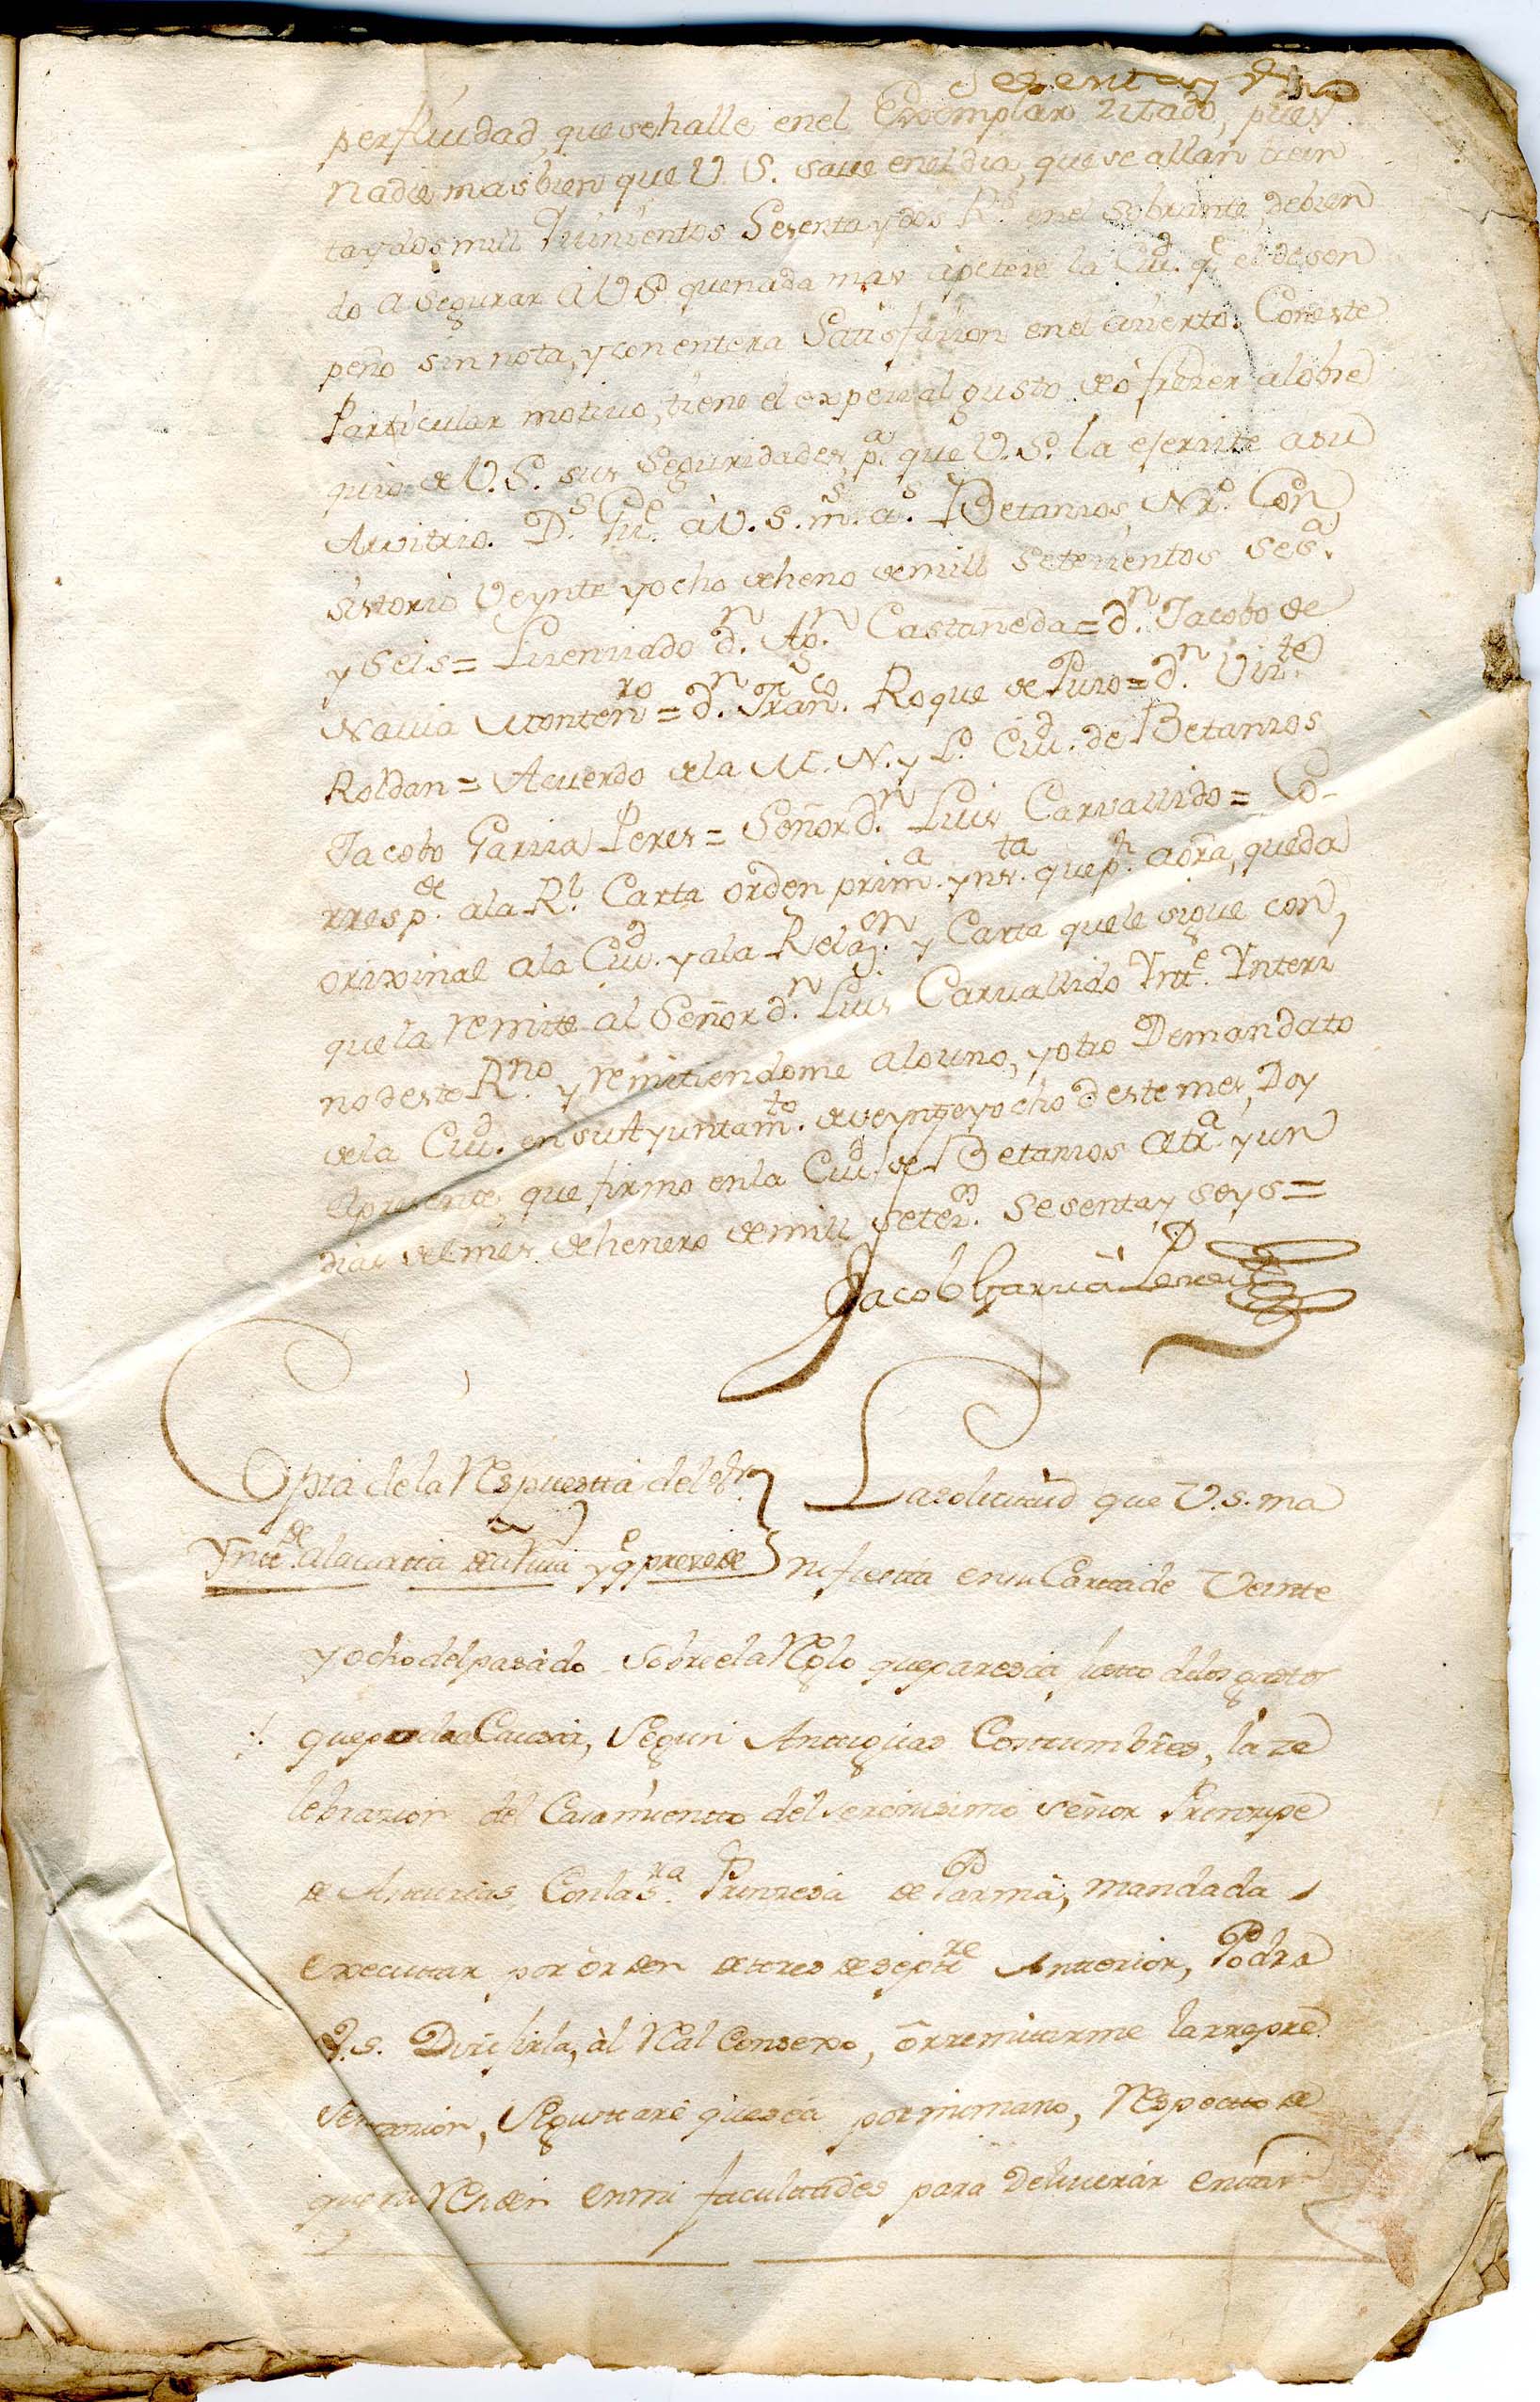 Sesenta y
perfluidad, que se halle en el Exemplar zitado, pues
Nadie mas bien que V. S. save en el dia, que se allan trein
ta y dos mill Quinientos Sesenta y dos R.s en el sobrante, debien
do asegurar a V S.a que nada mas apeteze la Ciu.d q.e el desem
peño sin nota, y con entera Satisfazion en el acierto. Con este
Particular motivo, tiene el expezial gusto de ofrezer al obse
quio de V. S. sus Seguridades, p.a que V. S.a la exerzite a su
Arvitrio. D.s Gu.e à V. S. m.s a.s Betanzos, Nr.o Con
sistorio Veynte y ocho de heno de mill Setezientos Ses.a
y Seis = Lizenziado d.n Ag.n Castañeda = d.n Jacobo de
Navia Monten.ro = d.n Fran.co Roque de Puzo = d.n Viz.te
Roldan = Acuerdo de la M. N. y L. Ciu.d de Betanzos
Jacobo Garzia Perez = Señor d.n Luis Carvallido = Co-
rresp.de a la R.l Carta orden prim.a ynr.ta que p.r aora, queda
orixinal a la Ciu.d y a la Relaz.on y Carta que le sigue con,
que la remite al Señor d.n Luis Carvallido Yntt.e Interi
no de este R.no y remitiendome a lo uno, y otro Demandato
de la Ciu.d en su Ayuntam.to de veynte y ocho deste mes, Doy
el presente, que firmo en la Ciu.d de Betanzos a tr.a y un
dias del mes de henero de mill setez.os sesenta y seys =
Jacob Garzia Perez
Copia de la Respuesta del S.r La solicitud que V. s. ma
Yntt.de a la cartta de y q.e prezede nifiesta en su Cartta de Veinte
y ocho del pasado sobre el a Reglo que parezia justto de los gastos
que pueda Causar, Segun Antiguas Costtumbres, la ze
lebrazion del Casamientto del serenisimo señor Prinzipe
de Asturias Con la S.ra Prinzesa de Parma, mandada
executtar por òrden de tres de septt.re Antterior, Podra
V. s. Dirijirla, àl Real Consexo, ô rremitirme la rrepre
senttazion, Si gusttare que sea por mi mano, Respectto de
que no Residen en mi facultades para Deliverar en tal